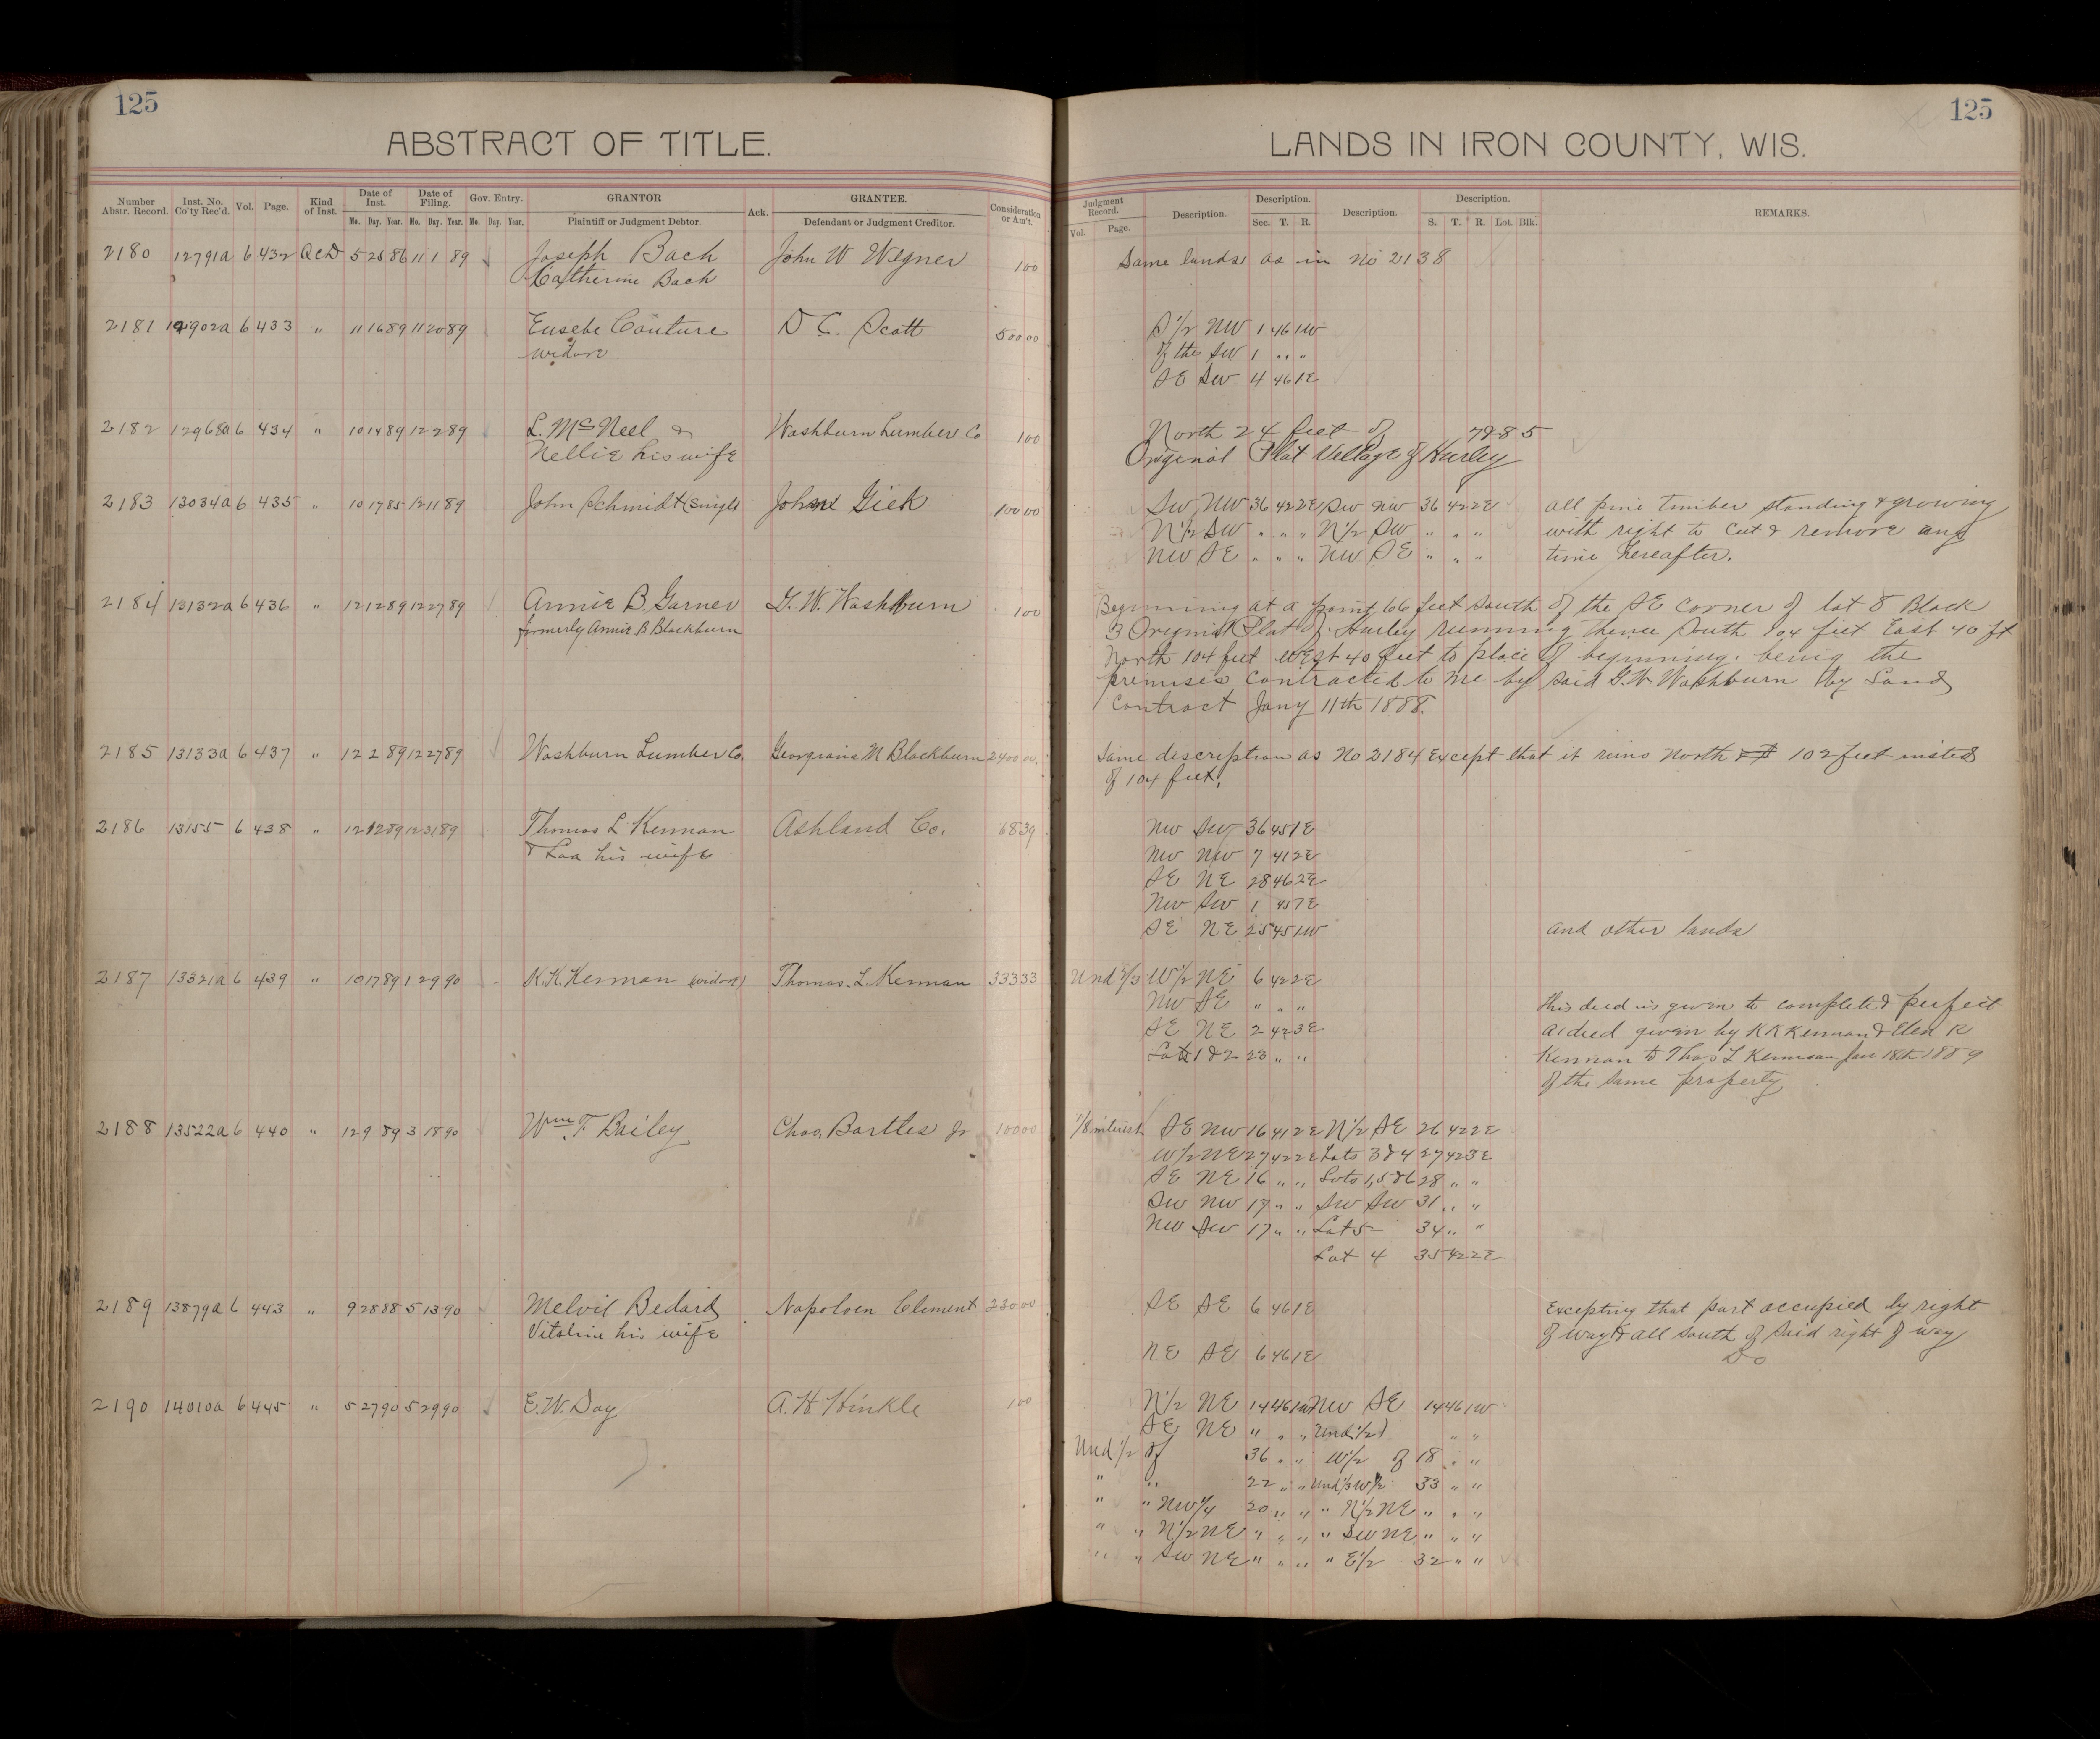 125
125
ABSTRACT OF TITLE.
LANDS IN IRON COUNTY, WIS.
Number Abstr. Record. Inst. No. Co'ty Rec'd. Vol. Page. Kind of Inst. Date of Inst. Mo. Day. Year. Date of Filing. Mo. Day. Year. Gov. Entry. Mo. Day. Year. GRANTOR Plaintiff or Judgment Debtor. Ack. GRANTEE. Defendant or Judgment Creditor. Consideration or Am't.
Judgment Record. Vol. Page. Description. Description. Sec. T. R. Description. Description. S. T. R. Lot. Blk. REMARKS.
2180 12791a 6 432 QCD 5 25 86 11 1 89 Joseph Bach John W Wegner 1 00 Same lands as in No 2138
Catherine Bach
2181 12902a 6 433 " 11 16 89 11 20 89 Eusebe Couture D C. Scott 500 00 S 1/2 NW 1 46 1W
widow of the SW 1 " "
SE SW 4 46 1E
2182 12968a 6 434 " 10 14 89 12 2 89 L. McNeel & Washburn Lumber Co 1 00 North 24 feet of 7 & 8 5
Nellie his wife Original Plat Village of Hurley
2183 13034a 6 435 " 10 17 85 12 11 89 John Schmidt (single) John Gick 100 00 SW NW 36 42 2E SW NW 36 42 2E all pine timber standing & growing
N 1/2 SW " " " N 1/2 SW " " " with right to cut & remove any
NW SE " " " NW SE " " " time hereafter.
2184 13132a 6 436 " 12 12 89 12 27 89 Annie B. Garner G. W. Washburn 1 00 Beginning at a point 66 feet south of the SE corner of lot 8 Block
formerly Annie B Blackburn 3 Original Plat of Hurley running thence South 104 feet East 40 ft
North 104 feet West 40 feet to place of beginning. being the
premises contracted to me by said G. W Washburn by Land
Contract Jany 11th 1888.
2185 13133a 6 437 " 12 2 89 12 27 89 Washburn Lumber Co. Georgiana N Blackburn 2400 00 Same description as No 2184 Except that it runs North 102 feet insted
of 104 feet.
2186 13155 6 438 " 12 12 89 12 31 89 Thomas L Kennan Ashland Co. 68 39 NW SW 36 45 1E
& Loa his wife NW NW 7 41 2E
SE NE 28 46 2E
NW SW 1 45 1E
SE NE 25 45 1W and other lands
2187 13321a 6 439 " 10 17 89 1 29 90 K. K. Kennan (widow) Thomas. L. Kennan 333 33 Und 2/3 W 1/2 NE 6 42 2E
NW SE " " " this deed is given to complete & perfect
SE NE 2 42 3E a deed given by K K Kennan & Elen K
Lots 1 & 2 23 " " Kennan to Thos L Kennan Jan 18th 1889
of the same property
2188 13522a 6 440 " 12 9 89 3 18 90 Wm. F Bailey Chas. Bartles Jr 100 00 1/8 interest SE NW 16 41 2E N 1/2 SE 26 42 2E
W 1/2 NE 27 42 2E Lots 3 & 4 27 42 3E
SE NE 16 " " Lots 1, 5 & 6 28 " "
SW NW 17 " " SW SW 31 " "
NW SW 17 " " Lot 5 34 " "
Lot 4 35 42 2E
2189 13879a 6 443 " 9 28 88 5 13 90 Melvil Bedard Napoloen Clement 230 00 SE SE 6 46 1E Excepting that part occupied by right
Vitaline his wife of way & all South of said right of way
NE SE 6 46 1E Do
2190 14010a 6 445 " 5 27 90 5 29 90 E. W. Day A. H Hinkle 1 00 N 1/2 NE 14 46 1W NW SE 14 46 1W
SE NE " " " (Und 1/2) " "
Und 1/2 of 36 " " W 1/2 of 18 " "
" " 22 " " Und 1/3 W 1/2 33 " "
" " NW 1/4 20 " " " N 1/2 NE " " "
" " N 1/2 NE " " " " SW NE " " "
" " SW NE " " " " E 1/2 32 " "